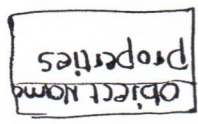 Object Name
properties